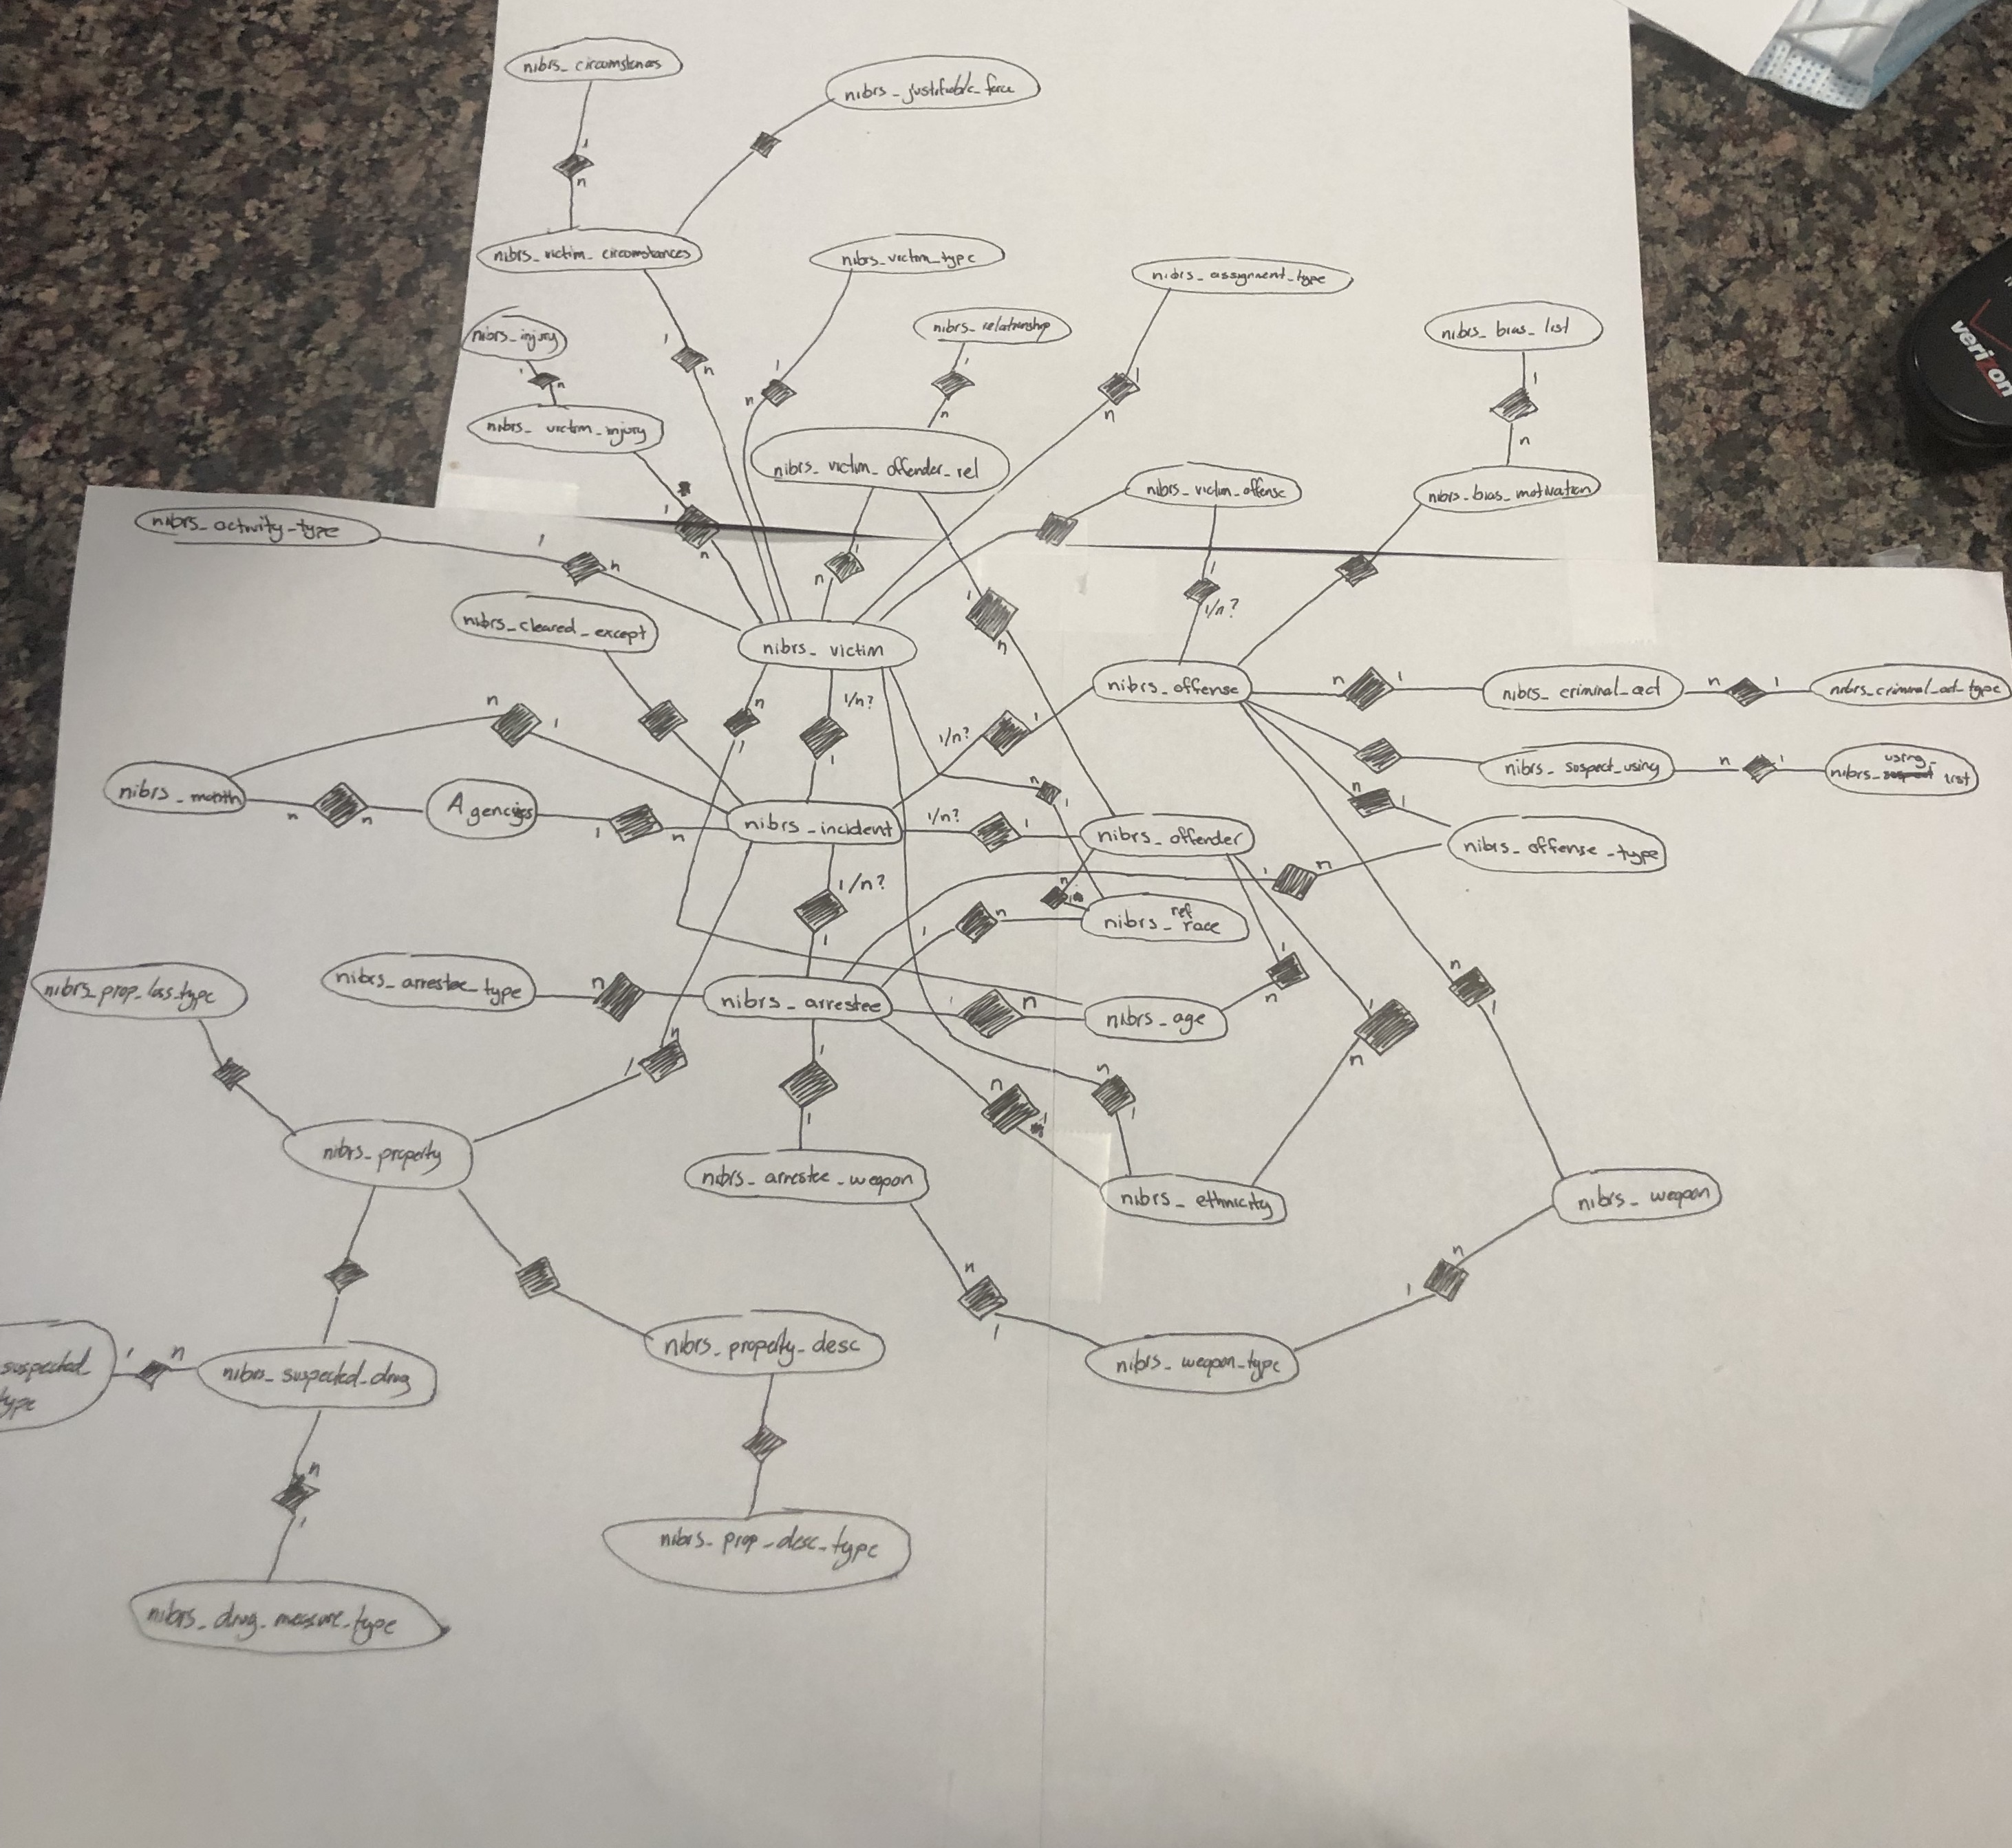 nibrs_circumstances
nibrs_justifiable_force
1
n
nibrs_victim_circumstances
nibrs_victim_type
nibrs_assignment_type
nibrs_injury
nibrs_relationship
nibrs_bias_list
verizon
1
n
1
n
1
n
1
n
1
n
1
n
nibrs_victim_injury
nibrs_victim_offender_rel
nibrs_victim_offense
nibrs_bias_motivation
nibrs_activity-type
1
n
1
n
1
n
1
n
1
1/n?
nibrs_cleared_except
nibrs_victim
nibrs_offense
n
1
nibrs_criminal_act
n
1
nibrs_criminal_act_type
n
1
n
1
1/n?
1
1/n?
1
nibrs_suspect_using
n
1
using_
nibrs_suspect list
nibrs_month
n
n
Agencies
1
n
nibrs_incident
1/n?
1
nibrs_offender
n
1
n
1
nibrs_offense_type
1/n?
1
n
1
n
1
n
ref
nibrs_race
nibrs_prop_loss_type
nibrs_arrestee_type
n
nibrs_arrestee
1
n
nibrs_age
1
n
1
n
n
1
n
1
1
1
n
n
1
nibrs_property
nibrs_arrestee_weapon
nibrs_ethnicity
nibrs_weapon
n
1
n
1
suspected_
type
1
n
nibrs_suspected_drug
nibrs_property_desc
nibrs_weapon_type
n
1
nibrs_prop_desc_type
nibrs_drug_measure_type